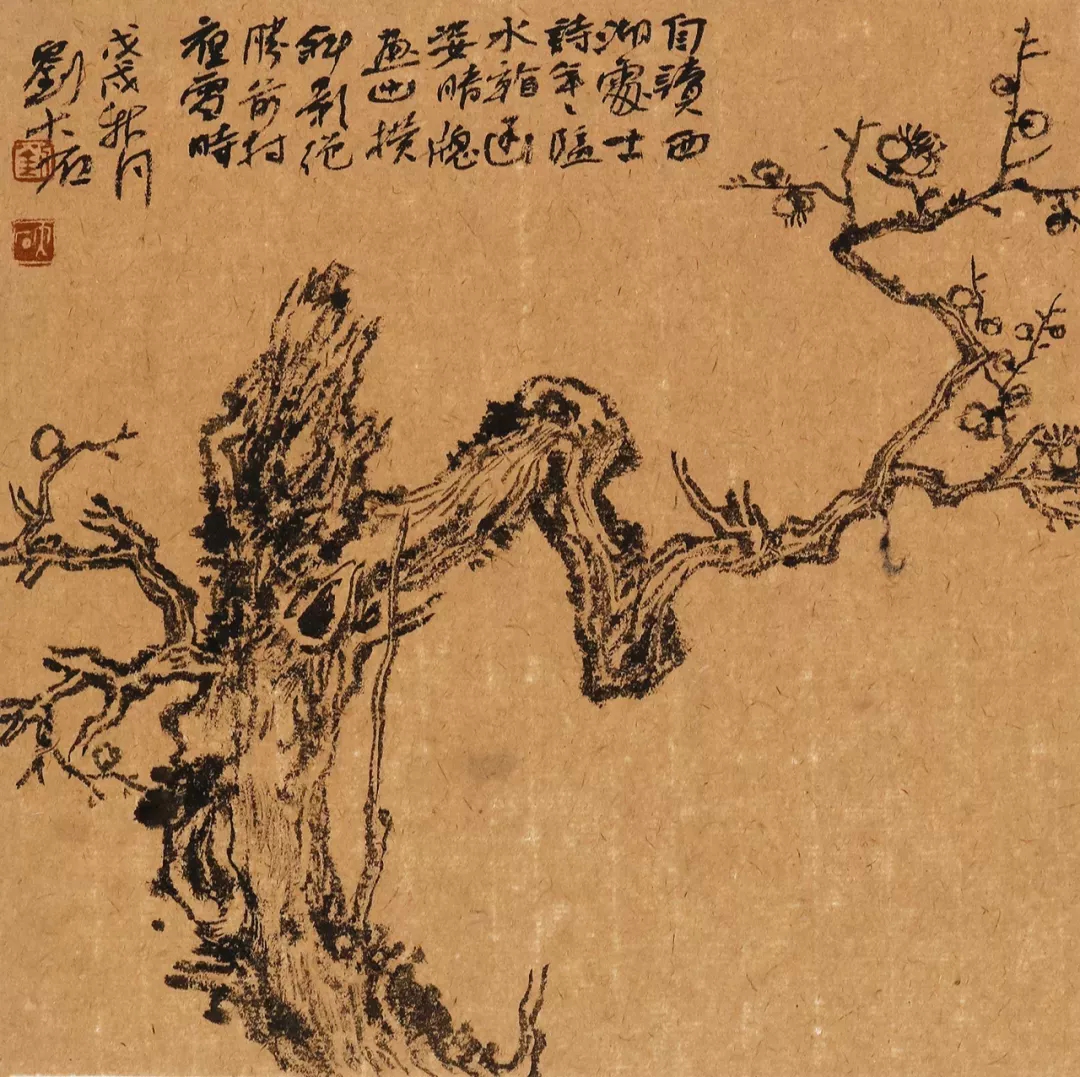 自讀西
湖處士
詩年々臨
水看幽
姿晴牕
畫出橫
斜影絕
勝前村
夜雪時
戊戌秋月
劉